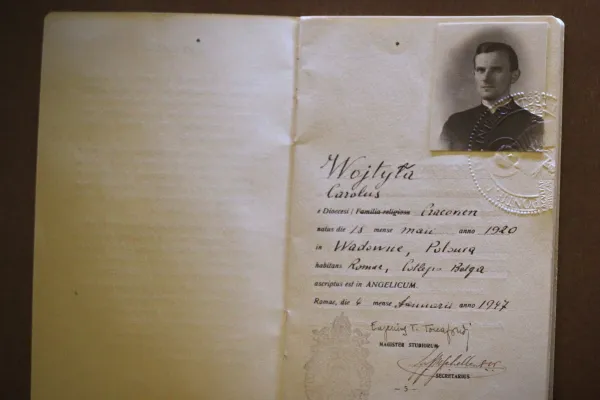 Wojtyła
Carolus
e Dioecesi / Familia religiosa Cracoven
natus die 18 mense maii anno 1920
in Wadowice, Polonia
habitans Romae, Collegio Belga
ascriptus est in ANGELICUM.
Romae, die 4 mense Januarii anno 1947
MAGISTER STUDIORUM
SECRETARIUS
- 3 -